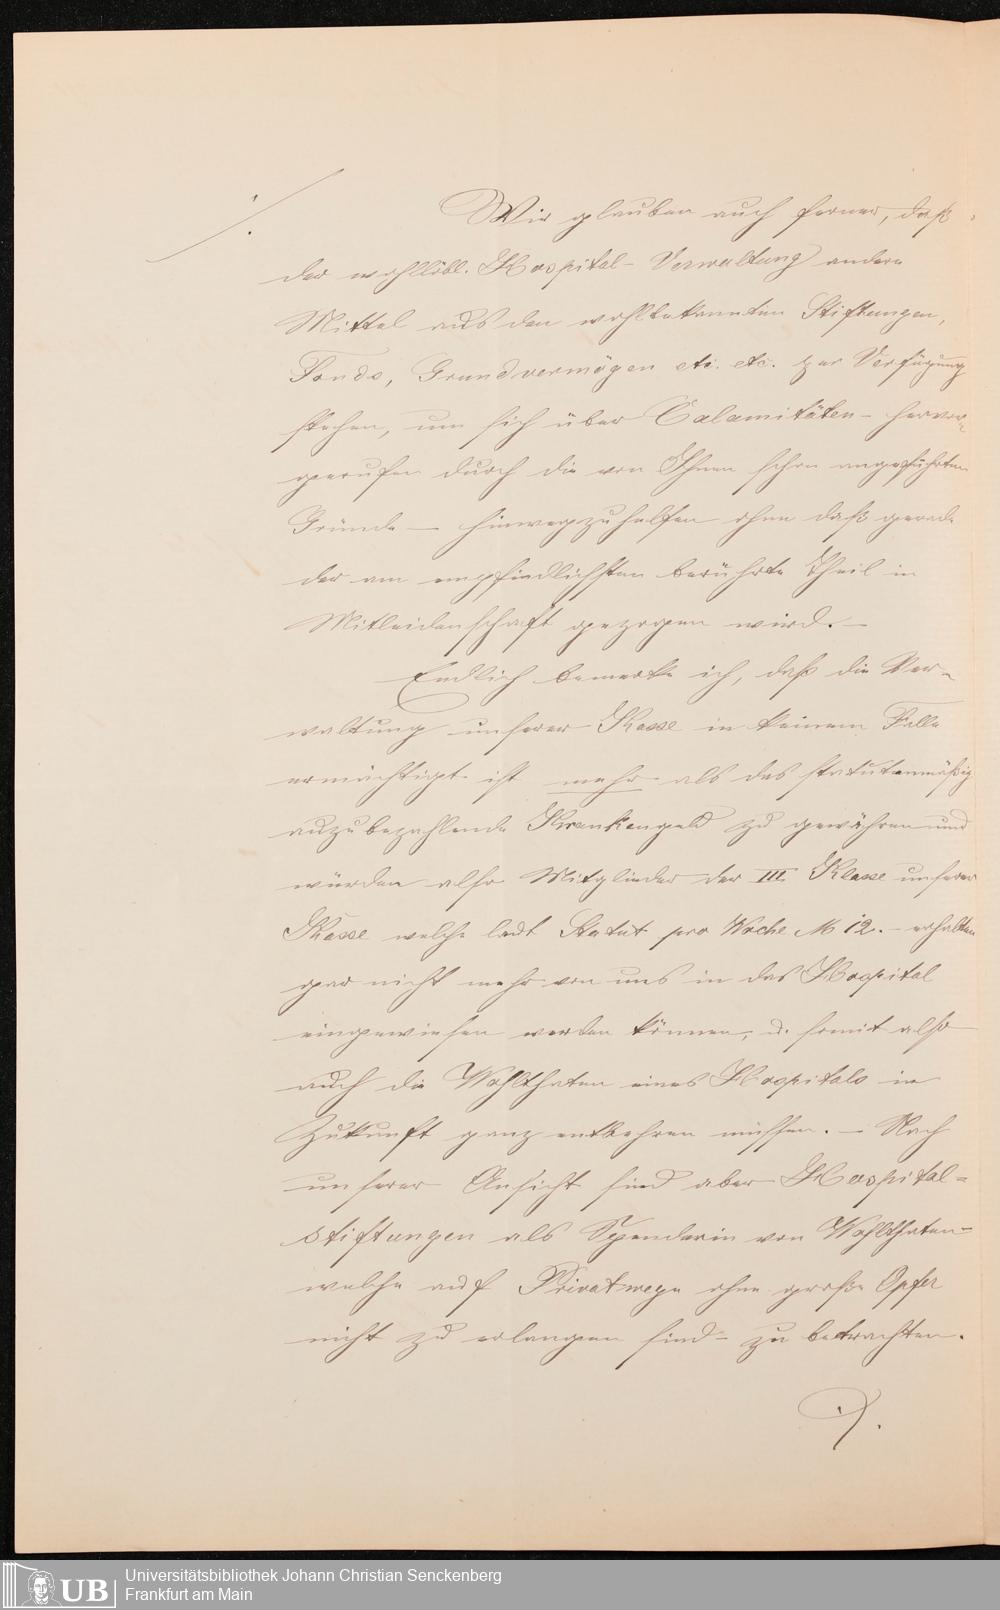 ./.
Wir glauben auch ferner, daß
der wohllöbl. Hospital-Verwaltung andere
Mittel aus den wohlbekannten Stiftungen,
Fonds, Grundvermögen etc. etc. zur Verfügung
stehen, um sich über Calamitäten – hervor-
gerufen durch die von Ihnen schon angeführten
Gründe – hinwegzuhelfen ohne daß gerade
der am empfindlichsten berührte Theil in
Mitleidenschaft gezogen wird. –
Endlich bemerke ich, daß die Ver-
waltung unserer Kasse in keinem Falle
ermächtigt ist mehr als das statutenmäßig
auszubezahlende Krankengeld zu gewähren und
würden also Mitglieder der III Klasse unserer
Kasse welche laut Statut pro Woche M 12. – erhalten
gar nicht mehr von uns in das Hospital
eingewiesen werden können, u. somit also
auch die Wohlthaten eines Hospitals in
Zukunft ganz entbehren müssen. – Nach
unserer Ansicht sind aber Hospital-
stiftungen als Spenderin von Wohlthaten –
welche auf Privatwege ohne große Opfer
nicht zu erlangen sind – zu betrachten.
./.
UB
Universitätsbibliothek Johann Christian Senckenberg
Frankfurt am Main